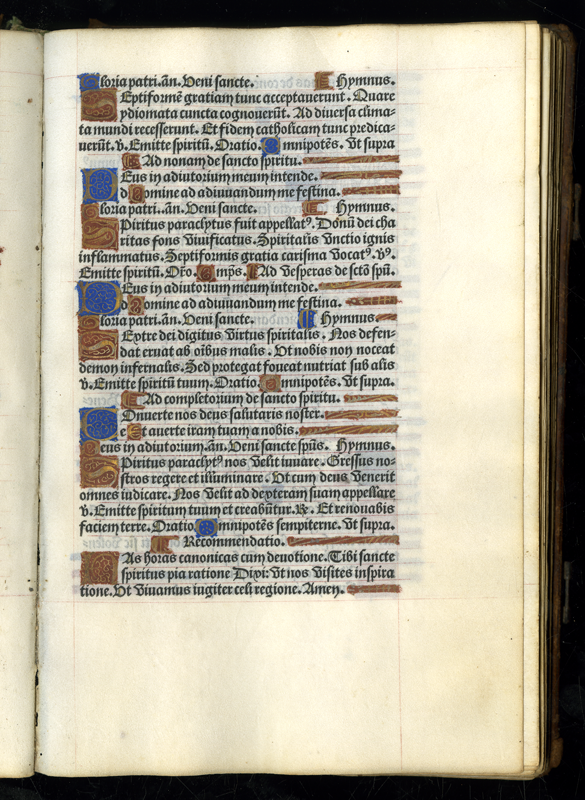 Gloria patri. añ. Veni sancte. Hymnus.
Septiformē gratiam tunc acceptauerunt. Quare
ydiomata cuncta cognouerūt. Ad diuersa clima-
ta mundi recesserunt. Et fidem catholicam tunc predica-
uerūt. v̄. Emitte spiritū. Oratio. Omnipotēs. Vt supra
Ad nonam de sancto spiritu.
Deus in adiutorium meum intende.
Domine ad adiuuandum me festina.
Gloria patri. añ. Veni sancte. Hymnus.
Spiritus paraclytus fuit appellatꝰ. Donū dei cha
ritas fons viuificatus. Spiritalis vnctio ignis
inflammatus. Septiformis gratia carisma vocatꝰ. v̄ꝰ.
Emitte spiritū. Or̄o. Omp̄s. Ad vesperas de sctō spū.
Deus in adiutorium meum intende.
Domine ad adiuuandum me festina.
Gloria patri. añ. Veni sancte. Hymnus
Dextre dei digitus virtus spiritalis. Nos defen-
dat eruat ab oībus malis. Vt nobis non noceat
demon infernalis. Sed protegat foueat nutriat sub alis
v̄. Emitte spiritū tuum. Oratio. Omnipotēs. Vt supra.
Ad completorium de sancto spiritu.
Conuerte nos deus salutaris noster.
Et auerte iram tuam a nobis.
Deus in adiutorium. añ. Veni sancte spūs. Hymnus.
Spiritus paraclytꝰ nos velit iuuare. Gressus no-
stros regere et illuminare. Vt cum deus venerit
omnes iudicare. Nos velit ad dexteram suam appellare
v̄. Emitte spiritum tuum et creabūtur. ℟. Et renouabis
faciem terre. Oratio. Omnipotēs sempiterne. Vt supra.
Recommendatio.
Has horas canonicas cum deuotione. Tibi sancte
spiritus pia ratione Dixi: vt nos visites inspira
tione. Vt viuamus iugiter celi regione. Amen.